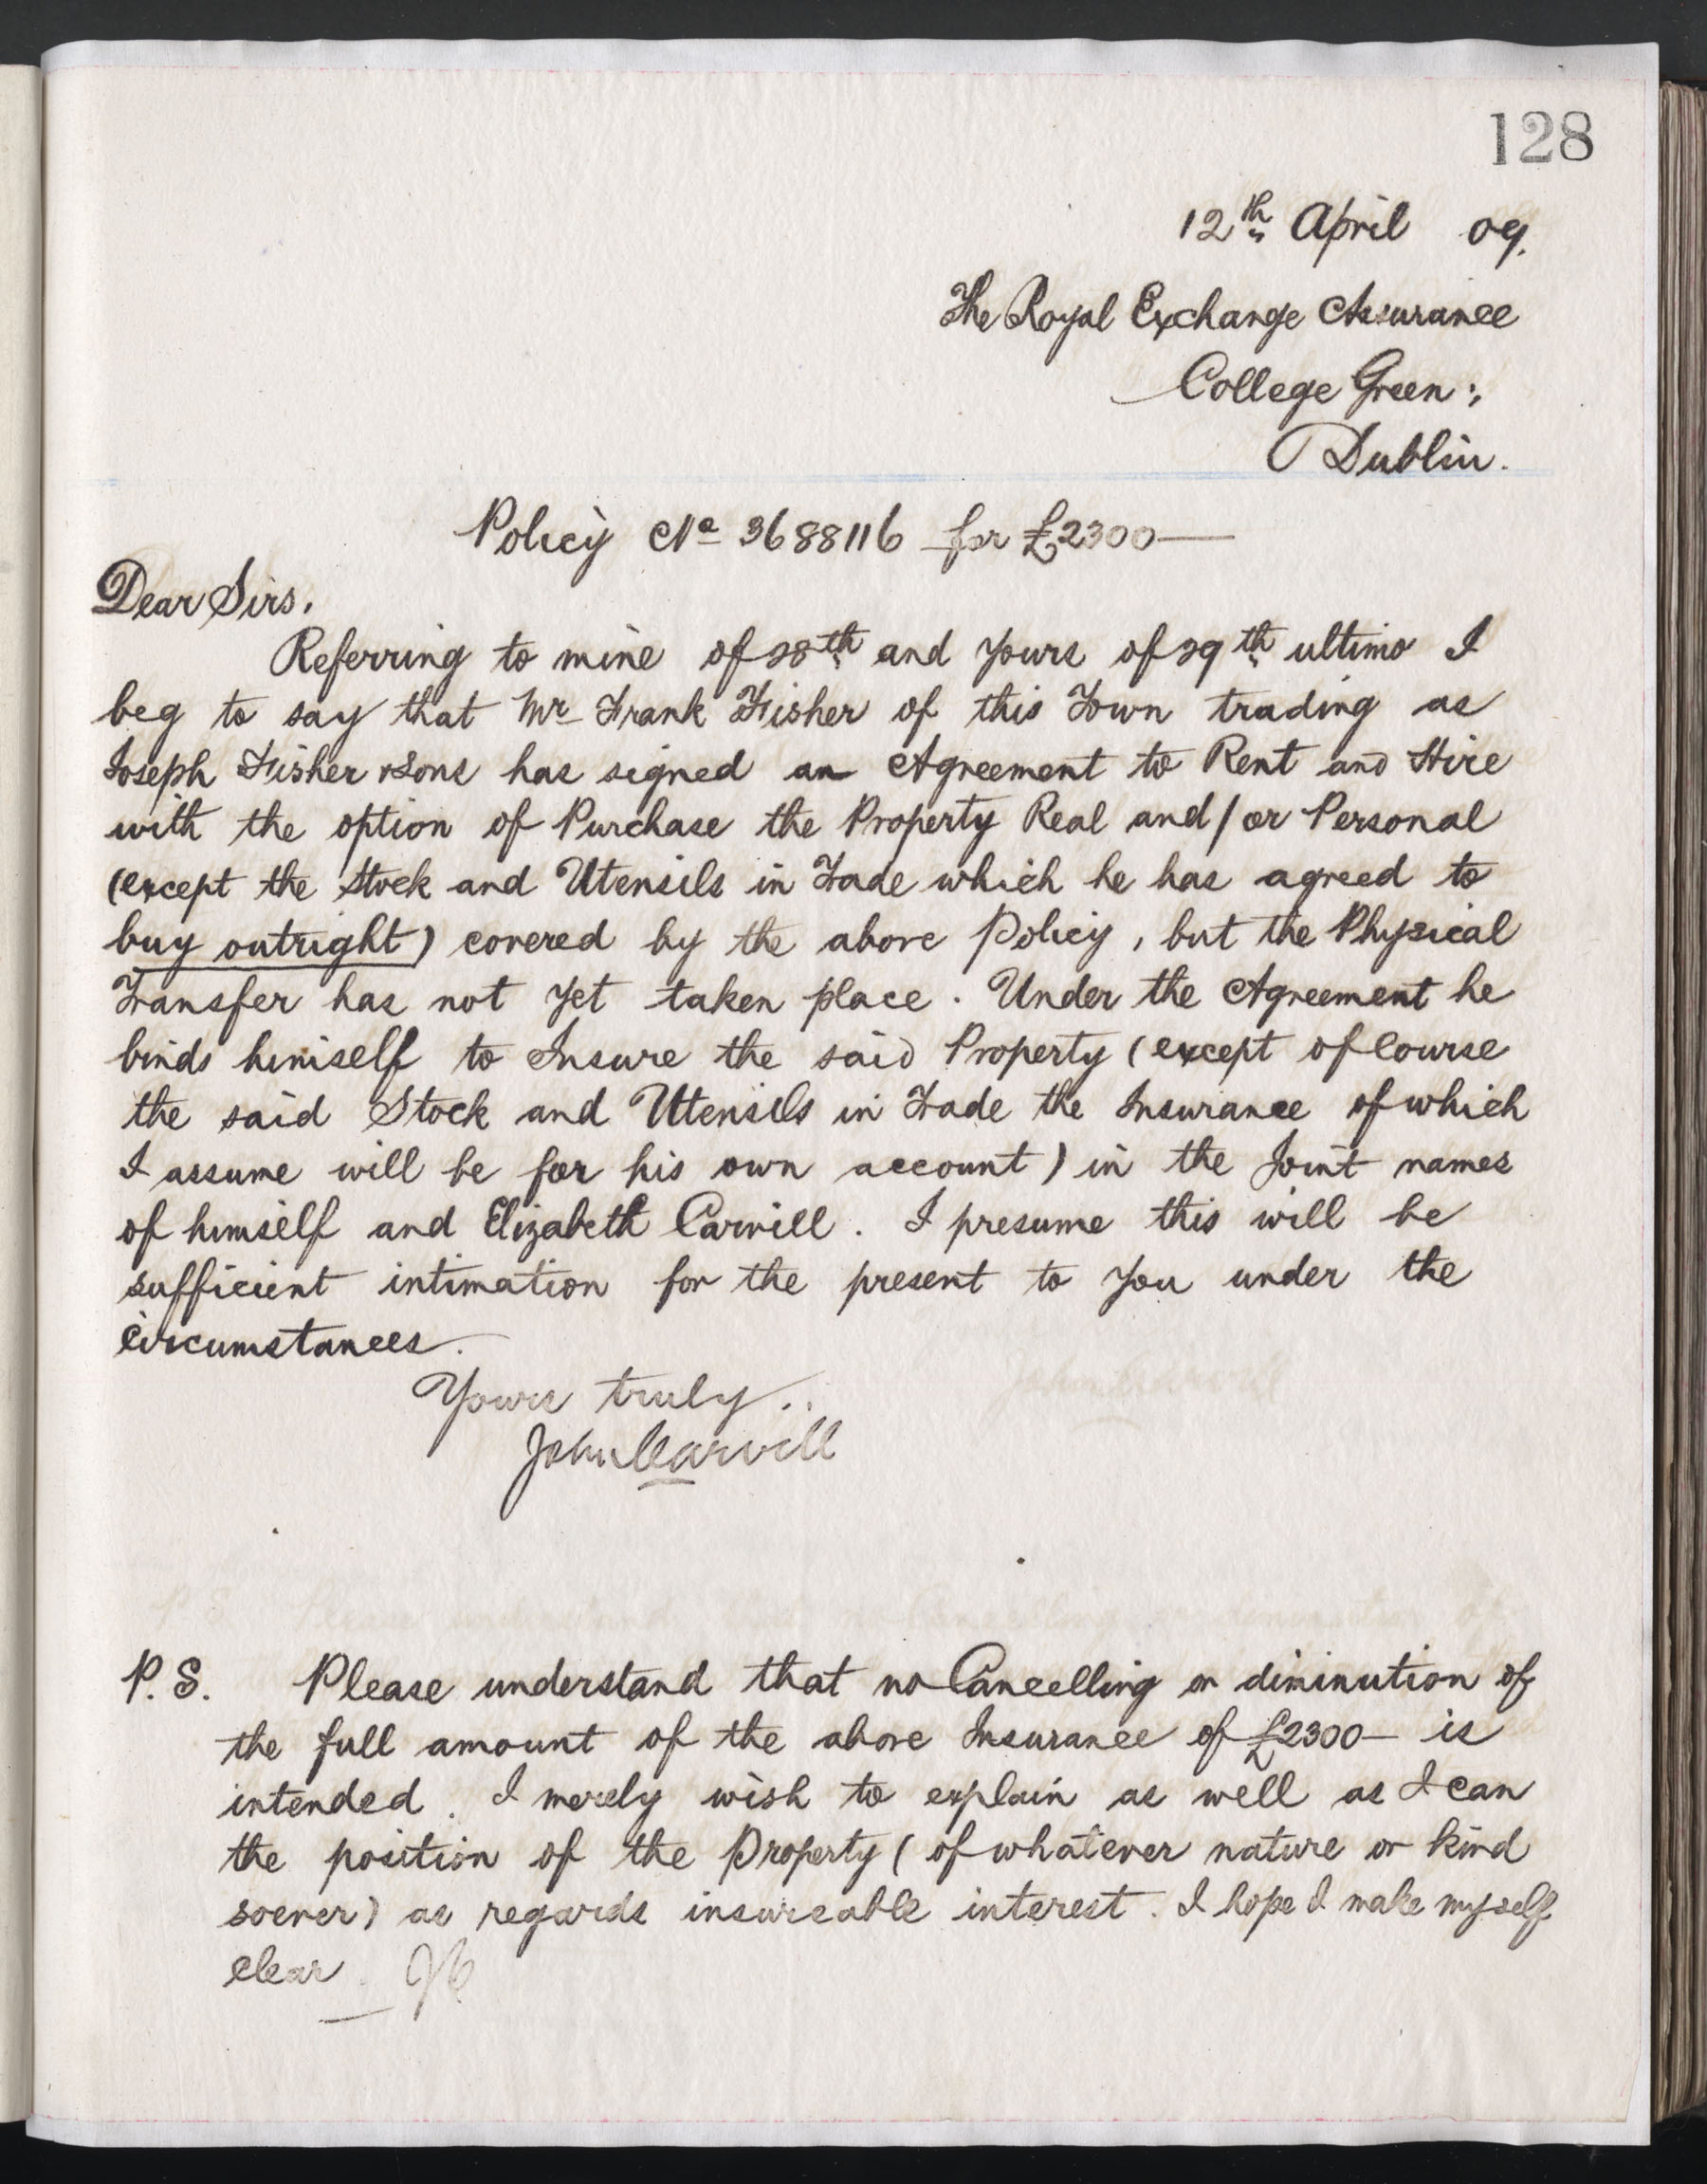 128
12th April 09.
The Royal Exchange Assurance
College Green:,
Dublin.
Policy No 3688116 for £2300—
Dear Sirs,
Referring to mine of 28th and yours of 29th ultimo I
beg to say that Mr Frank Fisher of this Town trading as
Joseph Fisher & Sons has signed an Agreement to Rent and Hire
with the option of Purchase the Property Real and/or Personal
(except the Stock and Utensils in Trade which he has agreed to
buy outright) covered by the above Policy, but the Physical
Transfer has not yet taken place. Under the Agreement he
binds himself to Insure the said Property (except of Course
the said Stock and Utensils in Trade the Insurance of which
I assume will be for his own account) in the Joint names
of himself and Elizabeth Carvill. I presume this will be
sufficient intimation for the present to you under the
Circumstances.
Yours truly..
John Carvill
P.S. Please understand that no Cancelling or diminution of
the full amount of the above Insurance of £2300— is
intended. I merely wish to explain as well as I can
the position of the Property (of whatever nature or kind
soever) as regards insureable interest. I hope I make myself
clear. JC